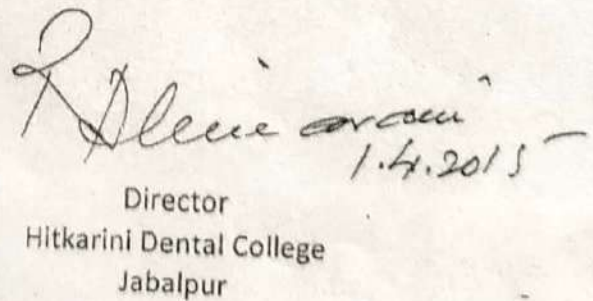 1.4.2015
Director
Hitkarini Dental College
Jabalpur